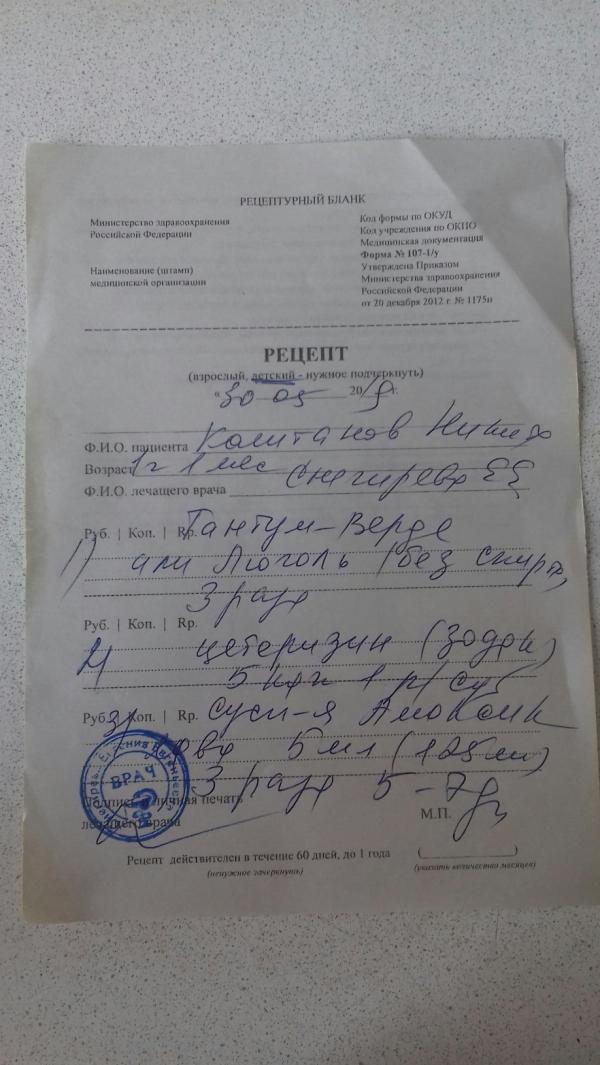 РЕЦЕПТУРНЫЙ БЛАНК
Министерство здравоохранения
Российской Федерации
Наименование (штамп)
медицинской организации
Код формы по ОКУД
Код учреждения по ОКПО
Медицинская документация
Форма № 107-1/у
Утверждена Приказом
Министерства здравоохранения
Российской Федерации
от 20 декабря 2012 г. № 1175н
РЕЦЕПТ
(взрослый, детский - нужное подчеркнуть)
« 30 05 2019 г.
Ф.И.О. пациента Никита
Возраст 1 г 1 мес
Ф.И.О. лечащего врача Снегирева ЕЕ
Руб. | Коп. | Rp. Тантум-Верде
1) или Люголь (без спирта,
3 раза
Руб. | Коп. | Rp.
2) цетеризин (зодак)
5 кап 1 р/сут
Руб. 3) Коп. | Rp. сусп-я
5 мл (125 мг)
3 раза 5-7 д
ВРАЧ
Подпись и личная печать
лечащего врача
М.П.
Рецепт действителен в течение 60 дней, до 1 года (
)
(ненужное зачеркнуть)
(указать количество месяцев)